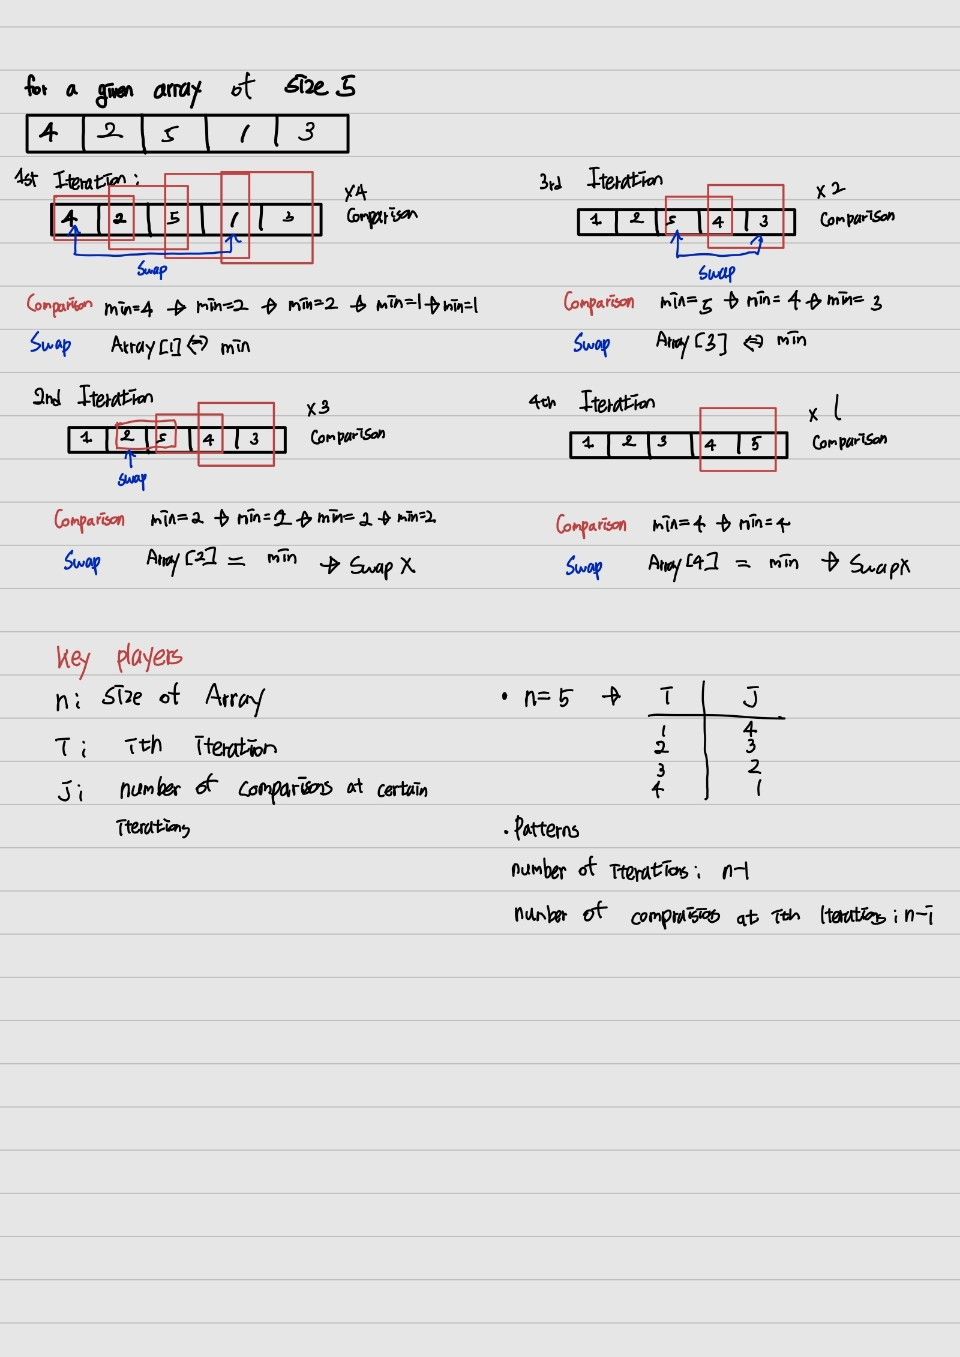 for a given array of size 5
4 2 5 1 3
1st Iteration :
4 2 5 1 3
x4
Comparison
Swap
Comparison min=4 → min=2 → min=2 → min=1 → min=1
Swap Array [1] ⇔ min
2nd Iteration
1 2 5 4 3
x3
Comparison
swap
Comparison min=2 → min=2 → min=2 → min=2
Swap Array [2] = min → Swap X
3rd Iteration
1 2 5 4 3
x2
Comparison
Swap
Comparison min=5 → min=4 → min=3
Swap Array [3] ⇔ min
4th Iteration
1 2 3 4 5
x 1
Comparison
Comparison min=4 → min=4
Swap Array [4] = min → Swap X
key players
n : size of Array
i : ith iteration
J : number of comparisons at certain
iterations
• n=5 → i J
1 4
2 3
3 2
4 1
• Patterns
number of iterations : n-1
number of compraisios at ith Iterations : n-i